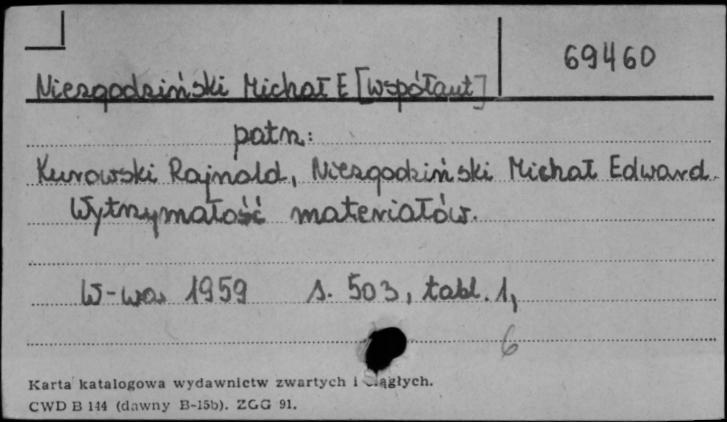 69460
Niezgodziński Michał E [współaut]
patrz:
Kurowski Rajnold, Niezgodziński Michał Edward.
Wytrzymałość materiałów.
W-wa 1959 s. 503, tabl. 1,
6
Karta katalogowa wydawnictw zwartych i ciągłych.
CWD B 144 (dawny B-15b). ZGG 91.